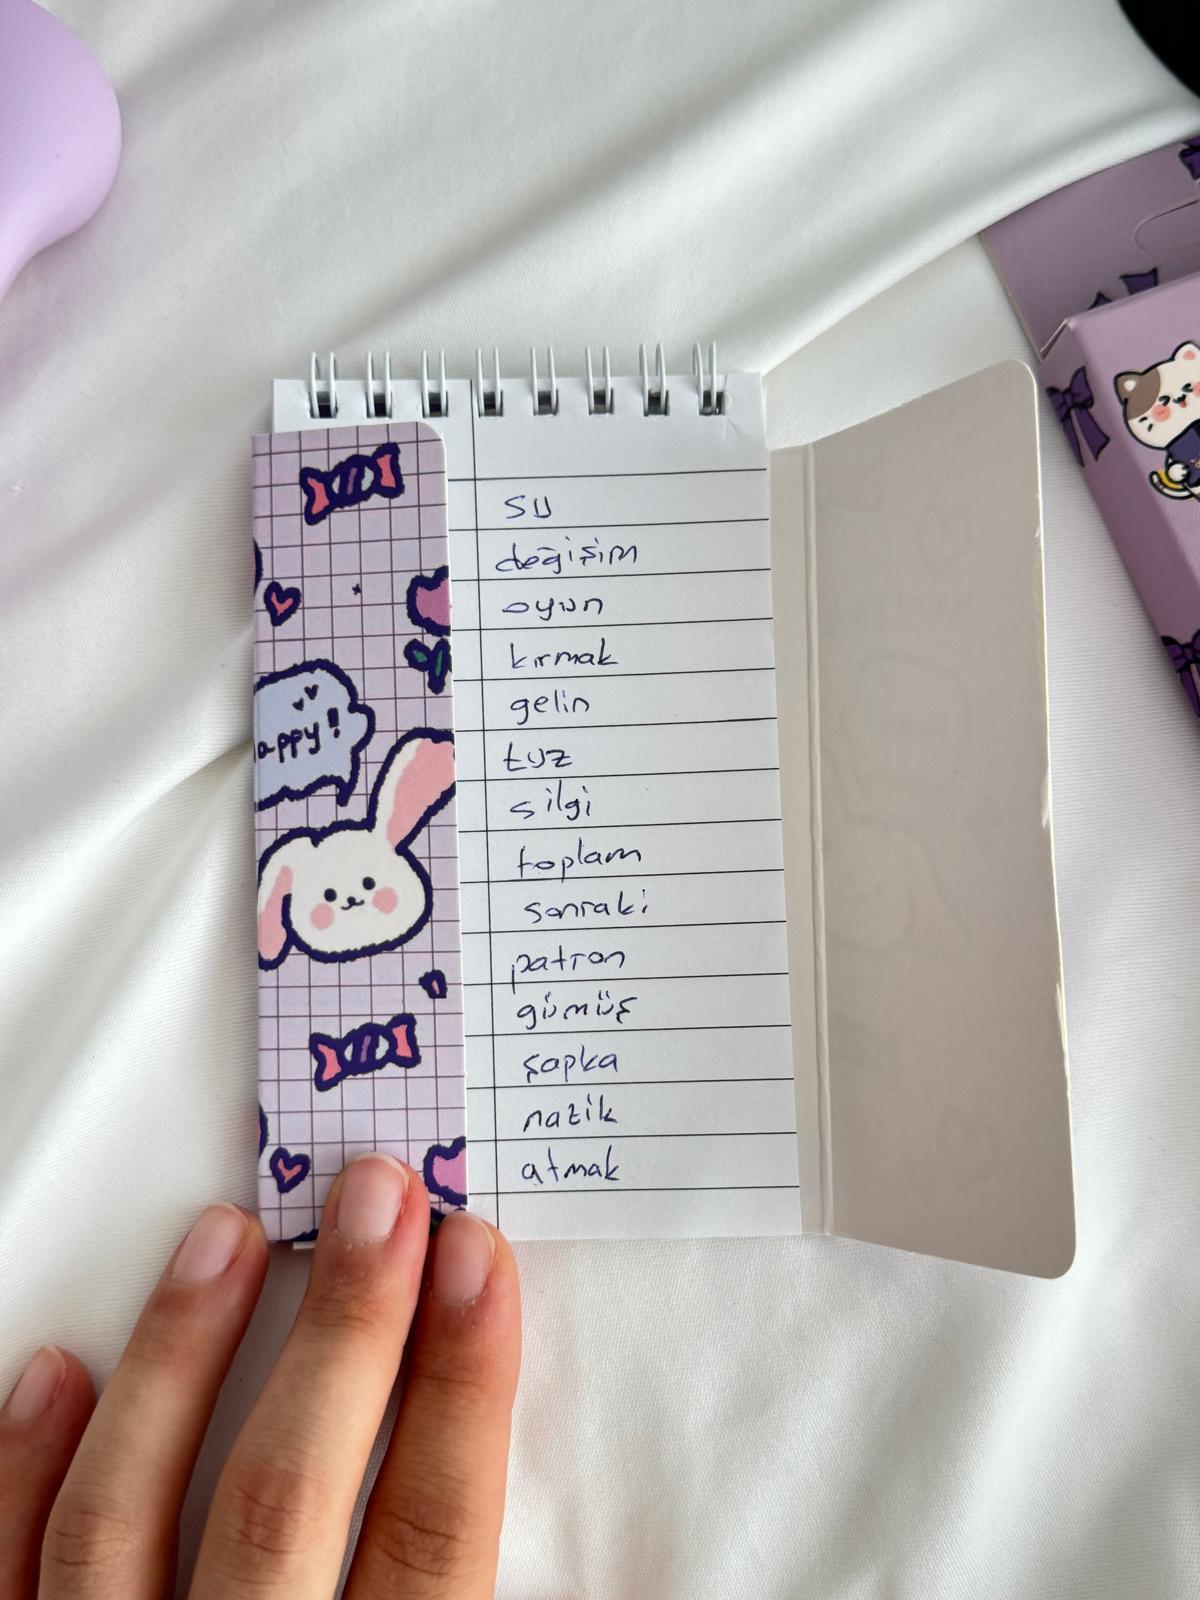 appy!
su
değişim
oyun
kırmak
gelin
tuz
silgi
toplam
sonraki
patron
gümüş
şapka
nazik
atmak